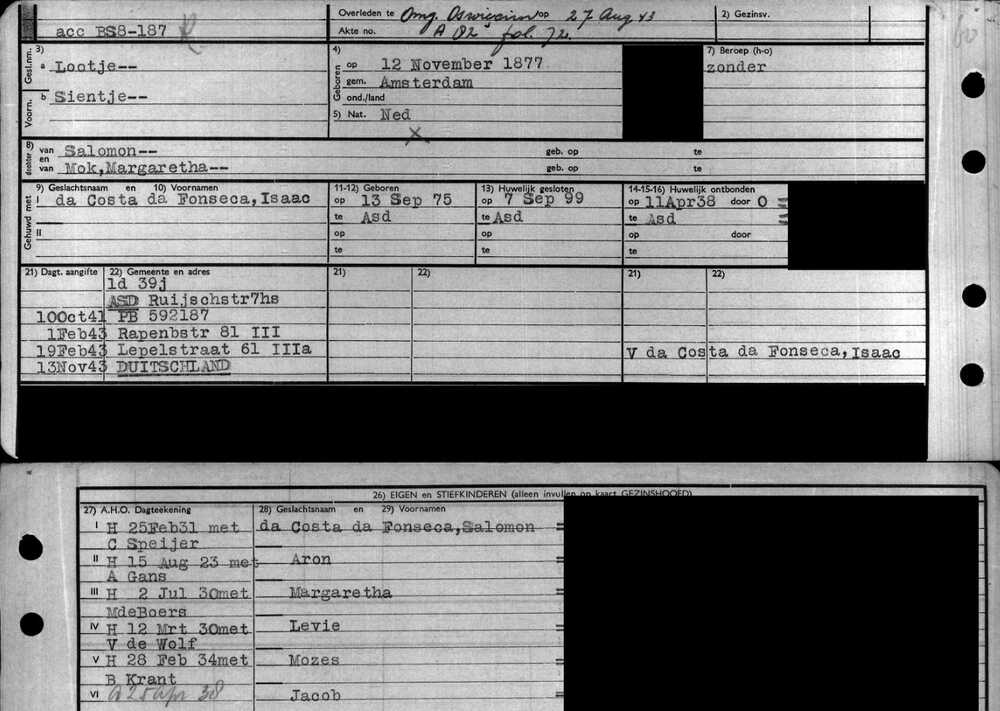 acc BS8-187
Overleden te Omg. Oswiecim op 27 Aug 43
Akte no. A 82 fol. 72.
2) Gezinsv.
60
Gesl.nm. 3) a Lootje--
Voorn. b Sientje--
4) Geboren op 12 November 1877
gem. Amsterdam
ond./land
5) Nat. Ned
7) Beroep (h-o)
zonder
8) dochter van Salomon-- geb. op te
en
van Mok,Margaretha-- geb. op te
Gehuwd met 9) Geslachtsnaam en 10) Voornamen
I da Costa da Fonseca,Isaac
II
11-12) Geboren
op 13 Sep 75
te Asd
op
te
13) Huwelijk gesloten
op 7 Sep 99
te Asd
op
te
14-15-16) Huwelijk ontbonden
op 11Apr38 door O =
te Asd =
op door
te
21) Dagt. aangifte 22) Gemeente en adres
1d 39j
ASD Ruijschstr7hs
10Oct41 PB 592187
1Feb43 Rapenbstr 81 III
19Feb43 Lepelstraat 61 IIIa
13Nov43 DUITSCHLAND
21) 22)
21) 22)
V da Costa da Fonseca,Isaac
26) EIGEN en STIEFKINDEREN (alleen invullen op kaart GEZINSHOOFD)
27) A.H.O. Dagteekening 28) Geslachtsnaam en 29) Voornamen
I H 25Feb31 met da Costa da Fonseca,Salomon =
C Speijer
II H 15 Aug 23 met Aron =
A Gans
III H 2 Jul 30met Margaretha =
MdeBoers
IV H 12 Mrt 30met Levie =
V de Wolf
V H 28 Feb 34met Mozes =
B Krant
VI A 25 Apr 38 Jacob =